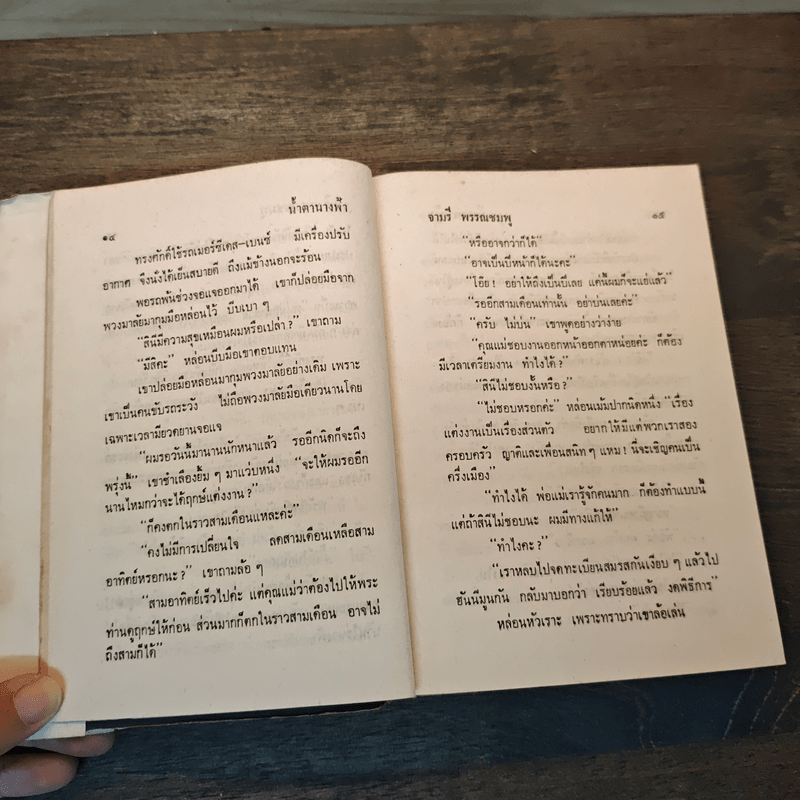 ๑๔ น้ำตานางฟ้า
ทรงศักดิ์ใช้รถเมอร์ซีเดส–เบนซ์ มีเครื่องปรับ
อากาศ จึงนั่งได้เย็นสบายดี ถึงแม้ข้างนอกจะร้อน
พอรถพ้นช่วงจอแจออกมาได้ เขาก็ปล่อยมือจาก
พวงมาลัยมากุมมือหล่อนไว้ บีบเบา ๆ
“สินีมีความสุขเหมือนผมหรือเปล่า?” เขาถาม
“มีสิคะ” หล่อนบีบมือเขาตอบแทน
เขาปล่อยมือหล่อนมากุมพวงมาลัยอย่างเดิม เพราะ
เขาเป็นคนขับรถระวัง ไม่ถือพวงมาลัยมือเดียวนานโดย
เฉพาะเวลามียวดยานจอแจ
“ผมรอวันนี้มานานนักหนาแล้ว รออีกนิดก็จะถึง
พรุ่งนี้” เขาชำเลืองยิ้ม ๆ มาแว่บหนึ่ง “จะให้ผมรออีก
นานไหมกว่าจะได้ฤกษ์แต่งงาน?”
“ก็คงตกในราวสามเดือนแหละค่ะ”
“คงไม่มีการเปลี่ยนใจ ลดสามเดือนเหลือสาม
อาทิตย์หรอกนะ?” เขาถามล้อ ๆ
“สามอาทิตย์เร็วไปค่ะ แต่คุณแม่ว่าต้องไปให้พระ
ท่านดูฤกษ์ให้ก่อน ส่วนมากก็ตกในราวสามเดือน อาจไม่
ถึงสามก็ได้”
จามรี พรรณชมพู ๑๕
“หรืออาจกว่าก็ได้”
“อาจเป็นปีหน้าก็ได้นะคะ”
“โอ๊ย! อย่าให้ถึงเป็นปีเลย แค่นี้ผมก็จะแย่แล้ว”
“รออีกสามเดือนเท่านั้น อย่าบ่นเลยค่ะ”
“ครับ ไม่บ่น” เขาพูดอย่างว่าง่าย
“คุณแม่ชอบงานออกหน้าออกตาหน่อยค่ะ ก็ต้อง
มีเวลาเตรียมงาน ทำไงได้?”
“สินีไม่ชอบงั้นหรือ?”
“ไม่ชอบหรอกค่ะ” หล่อนเม้มปากนิดหนึ่ง “เรื่อง
แต่งงานเป็นเรื่องส่วนตัว อยากให้มีแต่พวกเราสอง
ครอบครัว ญาติและเพื่อนสนิท ๆ แหม! นี่จะเชิญคนเป็น
ครึ่งเมือง”
“ทำไงได้ พ่อแม่เรารู้จักคนมาก ก็ต้องทำแบบนี้
แต่ถ้าสินีไม่ชอบนะ ผมมีทางแก้ให้”
“ทำไงคะ?”
“เราหลบไปจดทะเบียนสมรสกันเงียบ ๆ แล้วไป
ฮันนีมูนกัน กลับมาบอกว่า เรียบร้อยแล้ว งดพิธีการ”
หล่อนหัวเราะ เพราะทราบว่าเขาล้อเล่น